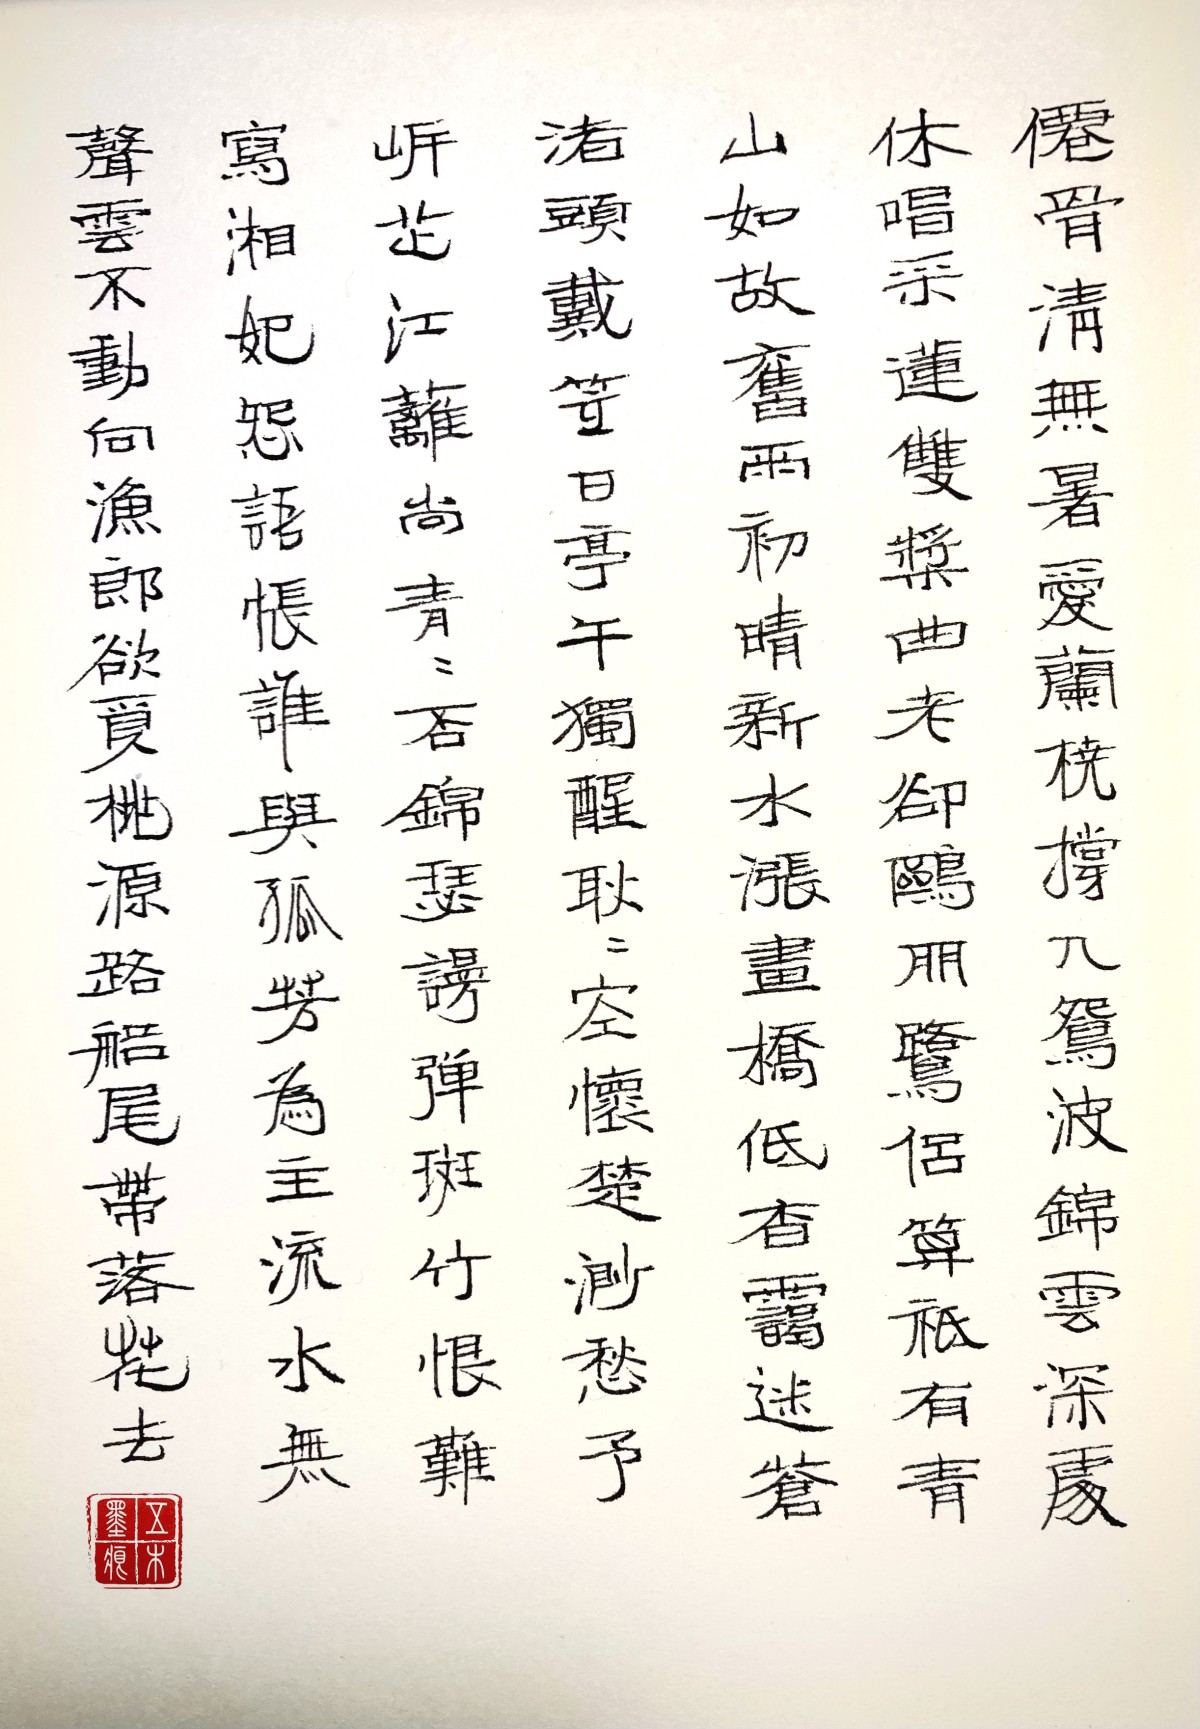 僊骨清無暑愛蘭橈撐入鴛波錦雲深處
休唱采蓮雙槳曲老卻鷗朋鷺侶算祇有青
山如故舊雨初晴新水漲畫橋低杳靄迷蒼
渚頭戴笠日亭午獨醒耿〻空懷楚渺愁予
岸芷江蘺尚青〻否錦瑟謾弹斑竹恨難
寫湘妃怨語悵誰與孤芳為主流水無
聲雲不動向漁郎欲覓桃源路船尾帶落花去
五木墨痕